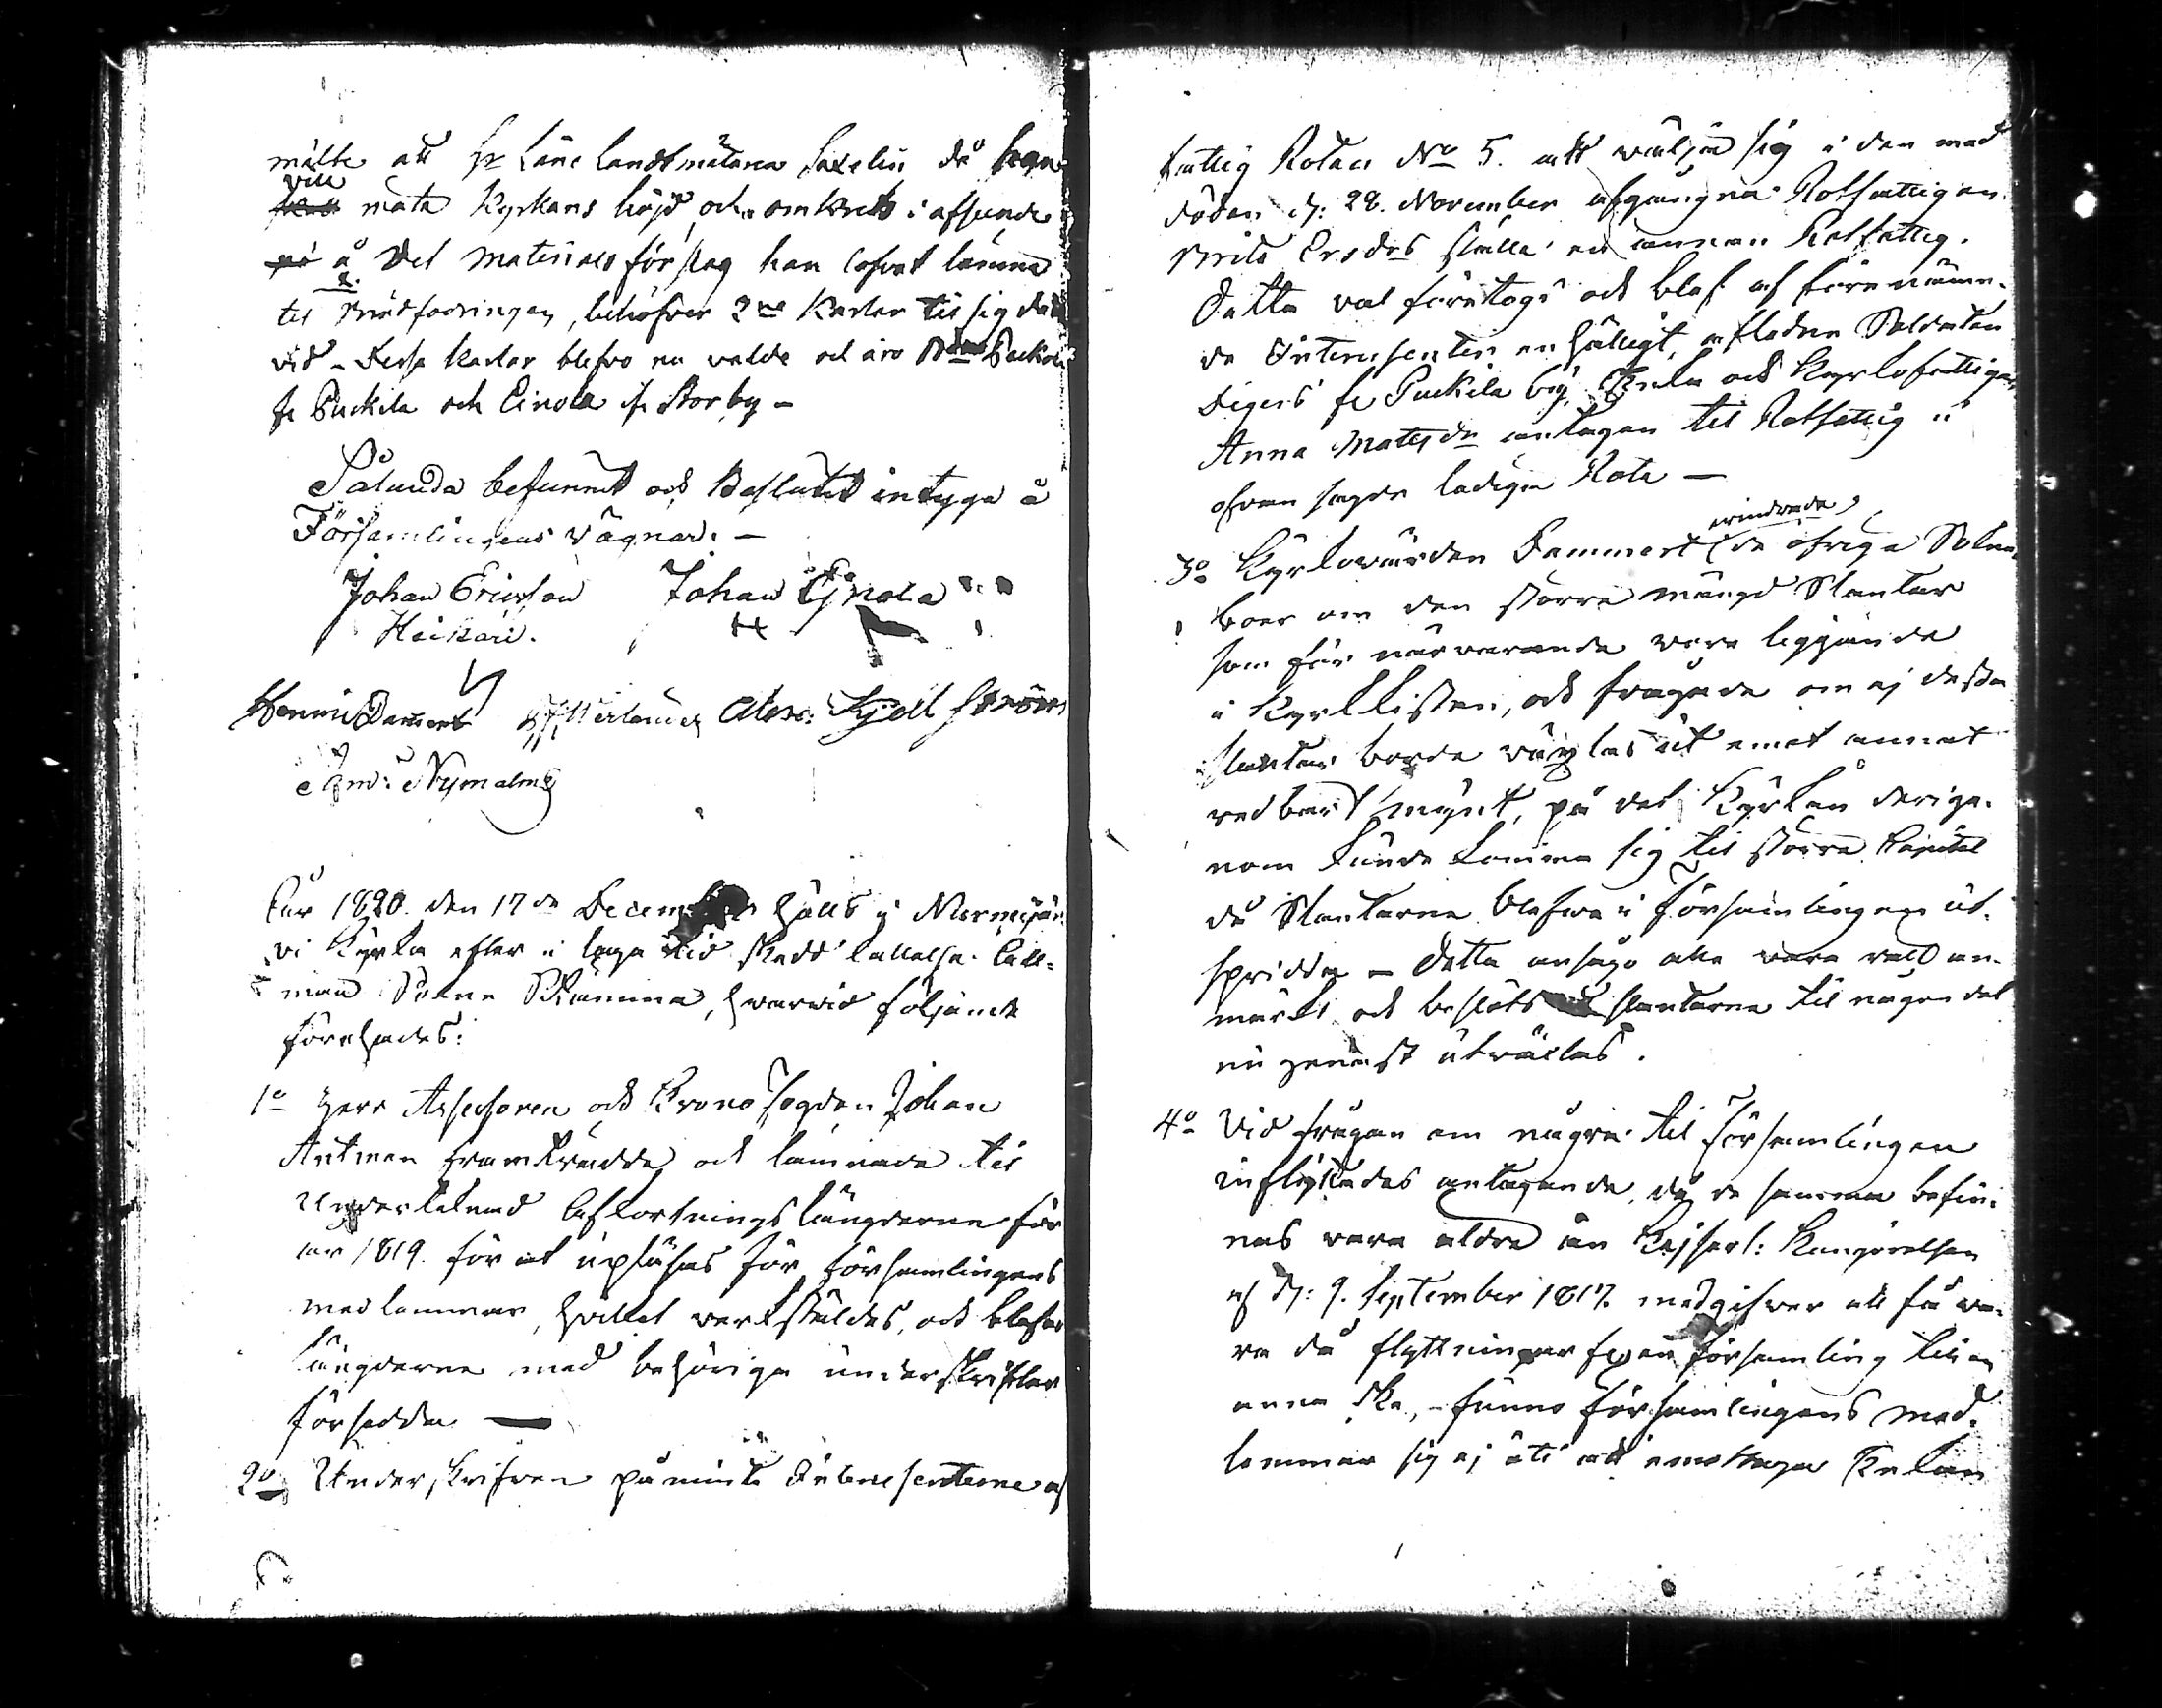 mälte att Hr Läne Landtmätaren Saxelin då han
vill
mäta Kyrkans höjd och omkrets i afseende
å det materiales förslag han lofvat lämna
til Brädfodringen, behöfver 2ne Karlar til sig der
vid – Desse Karlar blefvo nu valde och äro Puckola
fr Puckila och Einola fr Storby –
Sålunda befunnit och Beslutit intyga å
Församlingens vägnar. –
Johan Ericsson Johan Ejnola
Heikari.
Henric Dammert Alex: Kjellström
And: Nymalm
År 1820. den 17de December hölls i Nurmijär-
vi Kyrka efter i laga tid skedd kallelse. all-
män Sokne Stämma, hvarvid följande
förehades:
1o Herr Assessoren och Krono fogden Johan
Antman framträdde och lämnade til
Undertecknad Afkortnings längderne för
år 1819. för at upläsas för församlingens
medlemmar, hvilket verkställdes, och blefvo
längderne med behöriga underskrifter
försedde —
2o Underskrifven påminte Interessenterne af
fattig Rotan No 5. att välja sig i den med
döden d: 28. November afgångna Rotfattigan
Brita Ersdrs ställe en annan Rotfattig.
Detta val företogs och blef af förenämn-
de Interessenter enhälligt, afledne Soldaten
Segers fr Puckila by Enka och Kyrkofattigan
Anna Matsdr antagen til Rotfattig i
ofvan sagde ledige Rote —
erindrade
3o Kyrkovärden Dammert de öfrige Sokne-
boer om den större mängd Slantar
som för närvarande vore liggande
i Kyrk Kistan, och frågade om ej desse
slantar borde växlas ut emot annat
redbart mynt, på det Kyrkan derige-
nom kunde komma sig til större Capital
då Slantarne blefve i församlingen ut-
spridde – Detta ansågo alle vara väl an-
märkt och beslöts slantarne til någon del
nu genast utväxlas.
4o Vid frågan om några til församlingen
inflyttades antagande, då de samma befin-
nas vara äldre än Kejserl: Kungörelsen
af d: 9. September 1817. medgifver att få va-
ra då flyttningar från församling til en
annan ske, – funno församlingens med-
lemmar sig ej åt att emottaga Enkan